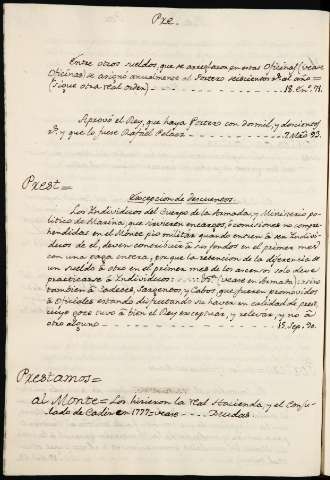 Pre.
Entre otros sueldos, que se arreglaron en estas Oficinas (vease
Oficinas) se asignó anualmente al Portero seiscientos rs. al año =
(sigue otra real orden) 18. En.º 71.
Aprobó el Rey, que haya Portero con dosmil, y doscientos
rs. y que lo fuese Rafael Pelaez 7. Mzo 93.
Prest.=
Excepcion de descuentos.
Los Individuos del Cuerpo de la Armada, y Ministerio po-
litico de Marina, que sirvieren encargos, ó comisiones no compre-
hendidas en el Monte pio militar quando entren à ser Indivi-
duos de el, deven contribuir à sus fondos en el primer mes
con una paga entera, porque la retencion de la diferencia de
un sueldo à otro en el primer mes de los ascensos solo deve
practicarse à Individuos (vease en Armata): sino
tambien à Cadetes, Sargentos, y Cabos, que fueren promovidos
à Oficiales estando disfrutando su haver en calidad de prest,
cuyo goce tuvo à bien el Rey exceptuar, y relevar, y no à
otro alguno 15. Sep. 90.
Prestamos=
al Monte= Los hicieron la real Hacienda, y el Consu-
lado de Cadiz en 1777= vease Deudas.